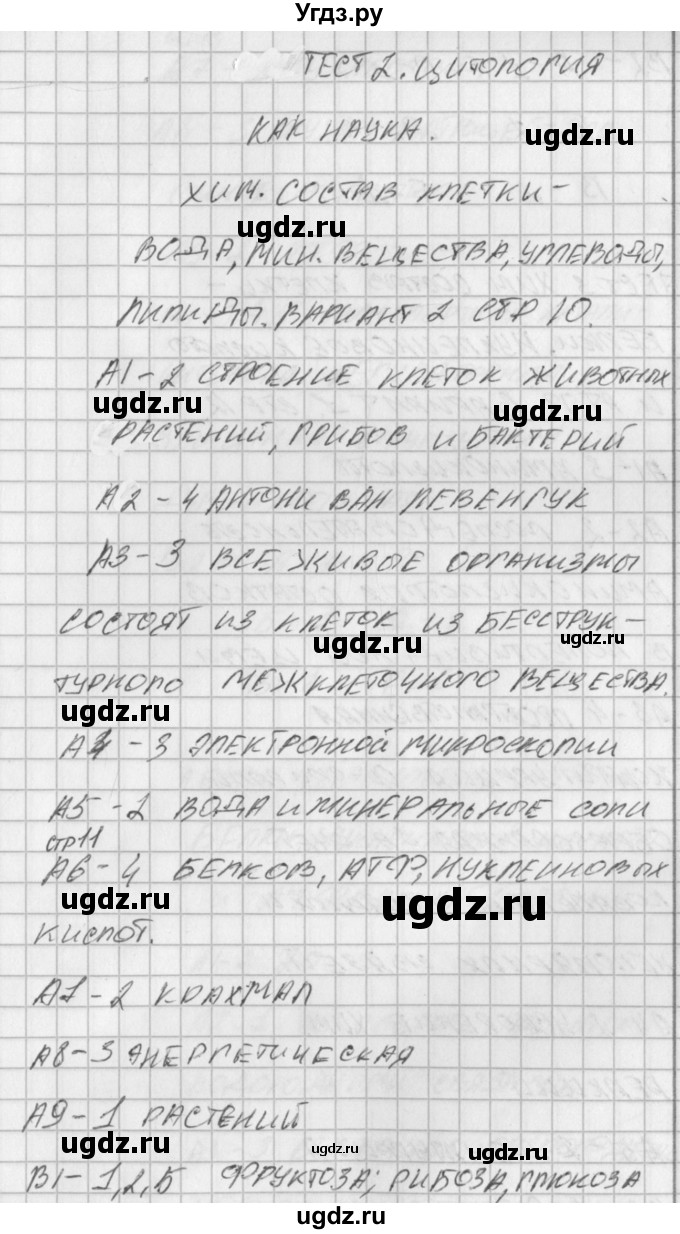 Угдз.ру
ТЕСТ 2. ЦИТОЛОГИЯ
КАК НАУКА.
ugdz.ru
ХИМ. СОСТАВ КЛЕТКИ-
ugdz.ru
ВОДА, МИН. ВЕЩЕСТВА, УГЛЕВОДЫ,
ЛИПИДЫ. ВАРИАНТ 2 СТР 10.
А1-2 СТРОЕНИЕ КЛЕТОК ЖИВОТНЫХ
ugdz.ru ugdz.ru
РАСТЕНИЙ, ГРИБОВ И БАКТЕРИЙ
А2-4 АНТОНИ ВАН ЛЕВЕНГУК
А3-3 ВСЕ ЖИВЫЕ ОРГАНИЗМЫ
СОСТОЯТ ИЗ КЛЕТОК ИЗ БЕССТРУК-
ugdz.ru ugdz.ru
ТУРНОГО МЕЖКЛЕТОЧНОГО ВЕЩЕСТВА.
ugdz.ru
А4-3 ЭЛЕКТРОННОЙ МИКРОСКОПИИ
А5-2 ВОДА И МИНЕРАЛЬНЫЕ СОЛИ
СТР 11
А6-4 БЕЛКОВ, АТФ, НУКЛЕИНОВЫХ
ugdz.ru ugdz.ru
КИСЛОТ.
А7-2 КРАХМАЛ
А8-3 ЭНЕРГЕТИЧЕСКАЯ
А9-1 РАСТЕНИЙ
ugdz.ru ugdz.ru
В1-1,2,5 ФРУКТОЗА; РИБОЗА, ГЛЮКОЗА
ugdz.ru